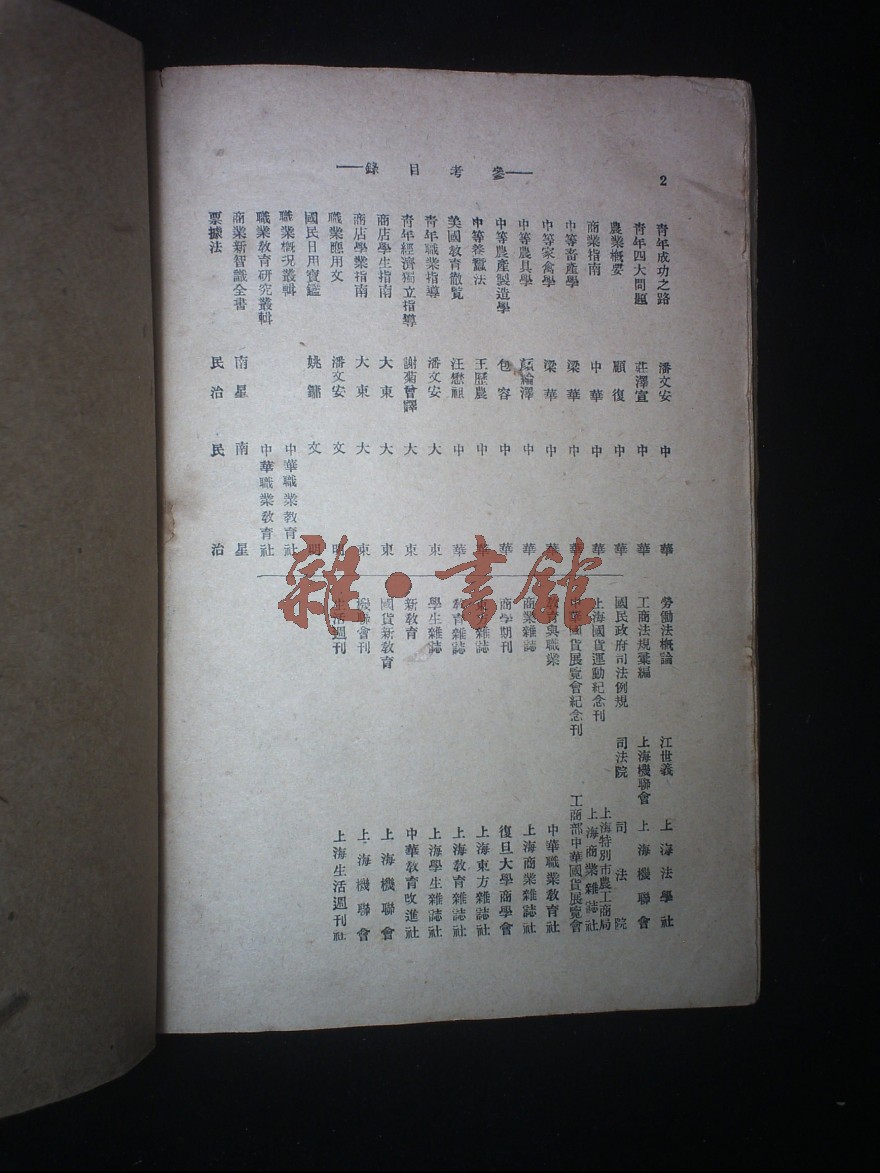 2
——參考目錄——
青年成功之路 潘文安 中華
青年四大問題 莊澤宣 中華
農業概要 顧復 中華
商業指南 中華 中華
中等畜產學 梁華 中華
中等家禽學 梁華 中華
中等農具學 顧綸澤 中華
中等農產製造學 包容 中華
中等養蠶法 王歷農 中華
美國教育徹覽 汪懋祖 中華
青年職業指導 潘文安 大東
青年經濟獨立指導 謝菊曾譯 大東
商店學生指南 大東 大東
商店學業指南 大東 大東
職業應用文 潘文安 文明
國民日用寶鑑 姚鏞 文明
職業概況叢輯 中華職業教育社
職業教育研究叢輯 中華職業教育社
商業新智識全書 南星 南星
票據法 民治 民治
勞働法概論 江世義 上海法學社
工商法規彙編 上海機聯會 上海機聯會
國民政府司法例規 司法院 司法院
上海國貨運動紀念刊 上海特別市農工商局 上海商業雜誌社
中華國貨展覽會紀念刊 工商部中華國貨展覽會
教育與職業 中華職業教育社
商業雜誌 上海商業雜誌社
商學期刊 復旦大學商學會
東方雜誌 上海東方雜誌社
教育雜誌 上海教育雜誌社
學生雜誌 上海學生雜誌社
新教育 中華教育改進社
國貨新教育 上海機聯會
機聯會刊 上海機聯會
生活週刊 上海生活週刊社
雜·書館